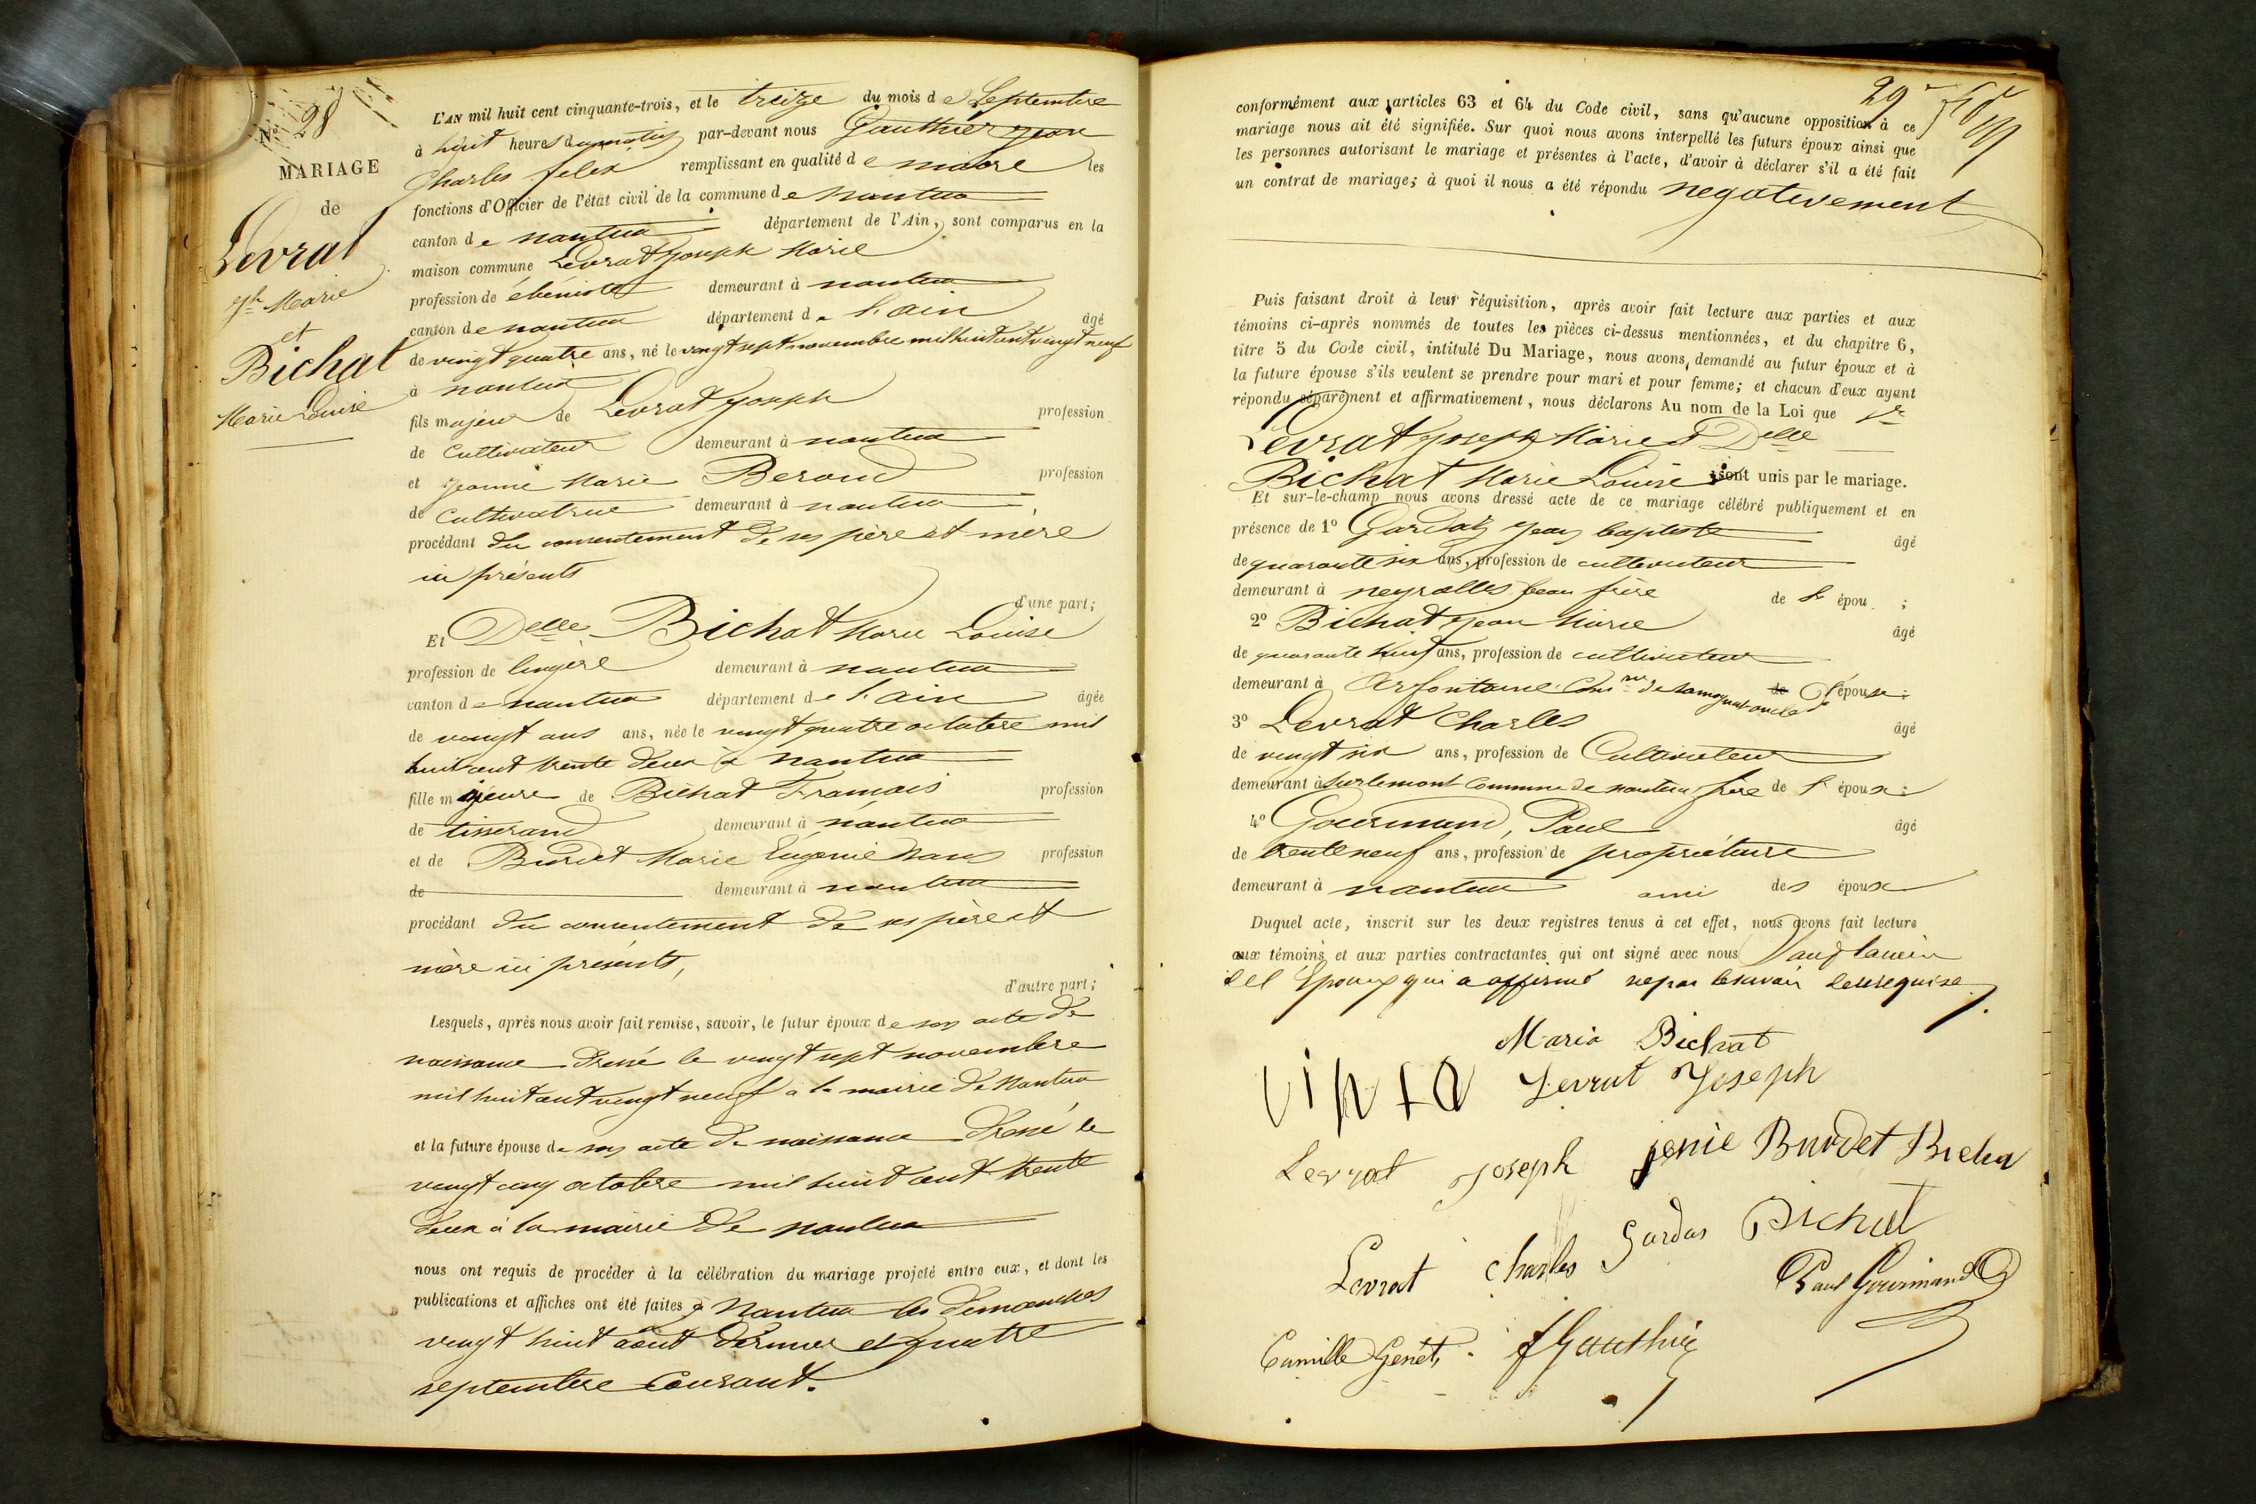 N° 28
MARIAGE
de
Levrat
Jh Marie
et
Bichat
Marie Louise
L'AN mil huit cent cinquante-trois, et le treize du mois de Septembre
à huit heures du matin par-devant nous Gauthier Jean
Charles felix remplissant en qualité de maire les
fonctions d'Officier de l'état civil de la commune de nantua
canton de nantua département de l'Ain, sont comparus en la
maison commune Levrat Joseph Marie
profession de ébéniste demeurant à nantua
canton de nantua département de l'ain âgé
de vingt quatre ans, né le vingt sept novembre mil huit cent vingt neuf
à nantua
fils majeur de Levrat Joseph profession
de cultivateur demeurant à nantua
et Jeanne Marie Beroud profession
de cultivatrice demeurant à nantua
procédant du consentement de ses père et mère
ici présents
d'une part;
Et Delle Bichat Marie Louise
profession de lingère demeurant à nantua
canton de nantua département de l'ain âgée
de vingt ans ans, née le vingt quatre octobre mil
huit cent trente deux à nantua
fille majeure de Bichat François profession
de tisserand demeurant à nantua
et de Burdet Marie Eugenie profession
de demeurant à nantua
procédant du consentement de ses père et
mère ici présents,
d'autre part;
Lesquels, après nous avoir fait remise, savoir, le futur époux de son acte de
naissance dressé le vingt sept novembre
mil huit cent vingt neuf à la mairie de Nantua
et la future épouse de son acte de naissance dressé le
vingt cinq octobre mil huit cent trente
deux à la mairie de nantua
nous ont requis de procéder à la célébration du mariage projeté entre eux, et dont les
publications et affiches ont été faites à Nantua les dimanches
vingt huit août dernier et quatre
septembre courant.
29
conformément aux articles 63 et 64 du Code civil, sans qu'aucune opposition à ce
mariage nous ait été signifiée. Sur quoi nous avons interpellé les futurs époux ainsi que
les personnes autorisant le mariage et présentes à l'acte, d'avoir à déclarer s'il a été fait
un contrat de mariage; à quoi il nous a été répondu negativement
Puis faisant droit à leur réquisition, après avoir fait lecture aux parties et aux
témoins ci-après nommés de toutes les pièces ci-dessus mentionnées, et du chapitre 6,
titre 5 du Code civil, intitulé Du Mariage, nous avons demandé au futur époux et à
la future épouse s'ils veulent se prendre pour mari et pour femme; et chacun d'eux ayant
répondu séparément et affirmativement, nous déclarons Au nom de la Loi que Sr
Levrat Joseph Marie & Delle
Bichat Marie Louise sont unis par le mariage.
Et sur-le-champ nous avons dressé acte de ce mariage célébré publiquement et en
présence de 1° Gardaz Jean baptiste âgé
de quarante six ans, profession de cultivateur
demeurant à neyrolles beau frère de l' épou ;
2° Bichat Jean Marie âgé
de quarante huit ans, profession de cultivateur
demeurant à Arfontaine Comne de Samognat oncle de l'épouse;
3° Levrat Charles âgé
de vingt six ans, profession de Cultivateur
demeurant à Surlemont commune de nantua frère de l' époux;
4° Gourmand, Paul âgé
de trente neuf ans, profession de propriétaire
demeurant à nantua ami des époux
Duquel acte, inscrit sur les deux registres tenus à cet effet, nous avons fait lecture
aux témoins et aux parties contractantes qui ont signé avec nous Sauf la mère
de l'Epoux qui a affirmé ne pas le savoir de ce requise.
Maria Bichat
Levrat Joseph
Levrat Joseph jenie Burdet Bicha
Levrat Charles Gardas Bichat
Paul Gourmand
Camille Genet. f Gauthier